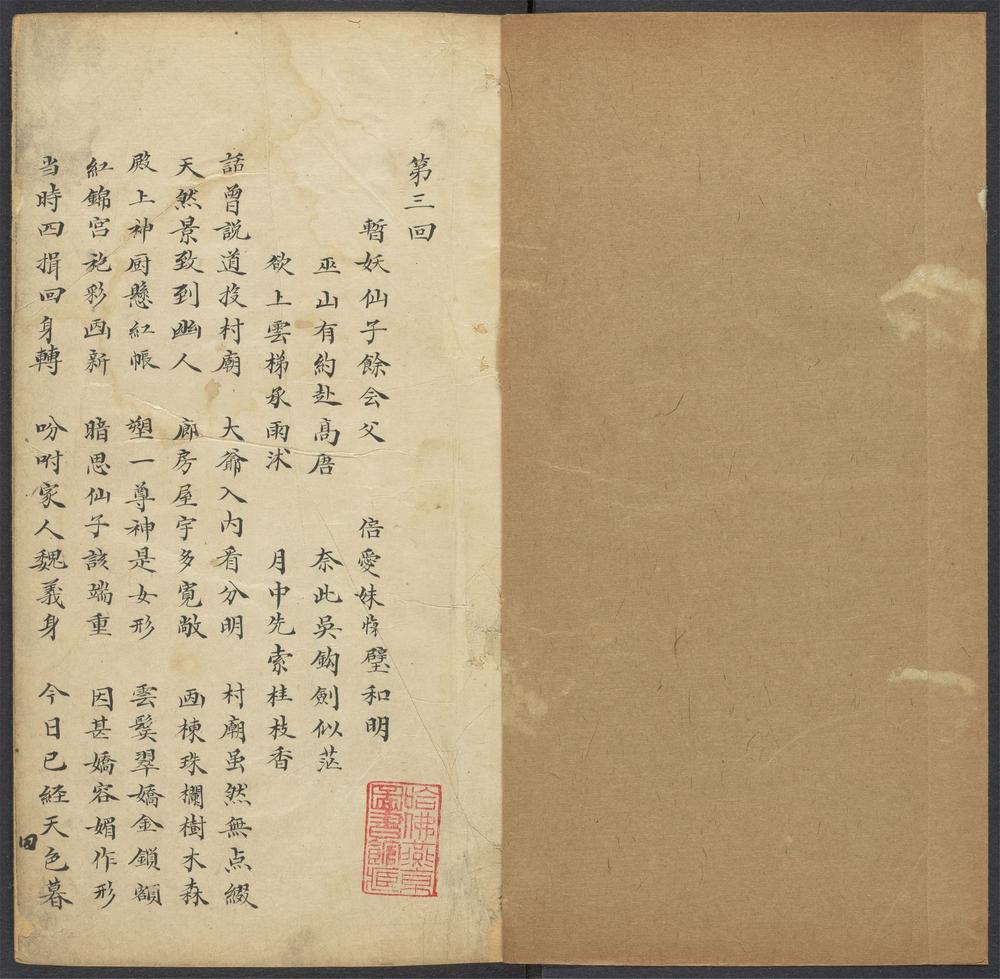 第三回
暫妖仙子餘会父　倍愛妹悼璧和明
巫山有約赴高唐　奈此吳鈎劍似茫
欲上雲梯承雨沭　月中先索桂枝香
話曾説道投村廟　大爺入内看分明　村廟虽然無点綴
天然景致到幽人　廊房屋宇多寬敞　画棟珠欄樹木森
殿上神厨懸紅帳　塑一尊神是女形　雲髮翠嬌金鎖額
紅錦宮袍彩画新　暗思仙子該端重　因甚嬌容媚作形
当時四揖回身轉　吩咐家人魏義身　今日已経天色暮
哈佛燕京圖書館藏